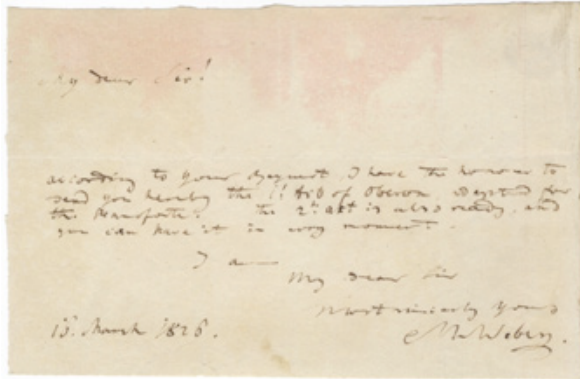 My dear Sir!
according to your request I have the honour to
send you hereby the 1st Act of Oberon, adapted for
the Pianoforte. the 2d Act is also ready, and
you can have it in every moment.
I am
My dear Sir
Most sincerely yours
CMvWeber.
15. March 1826.